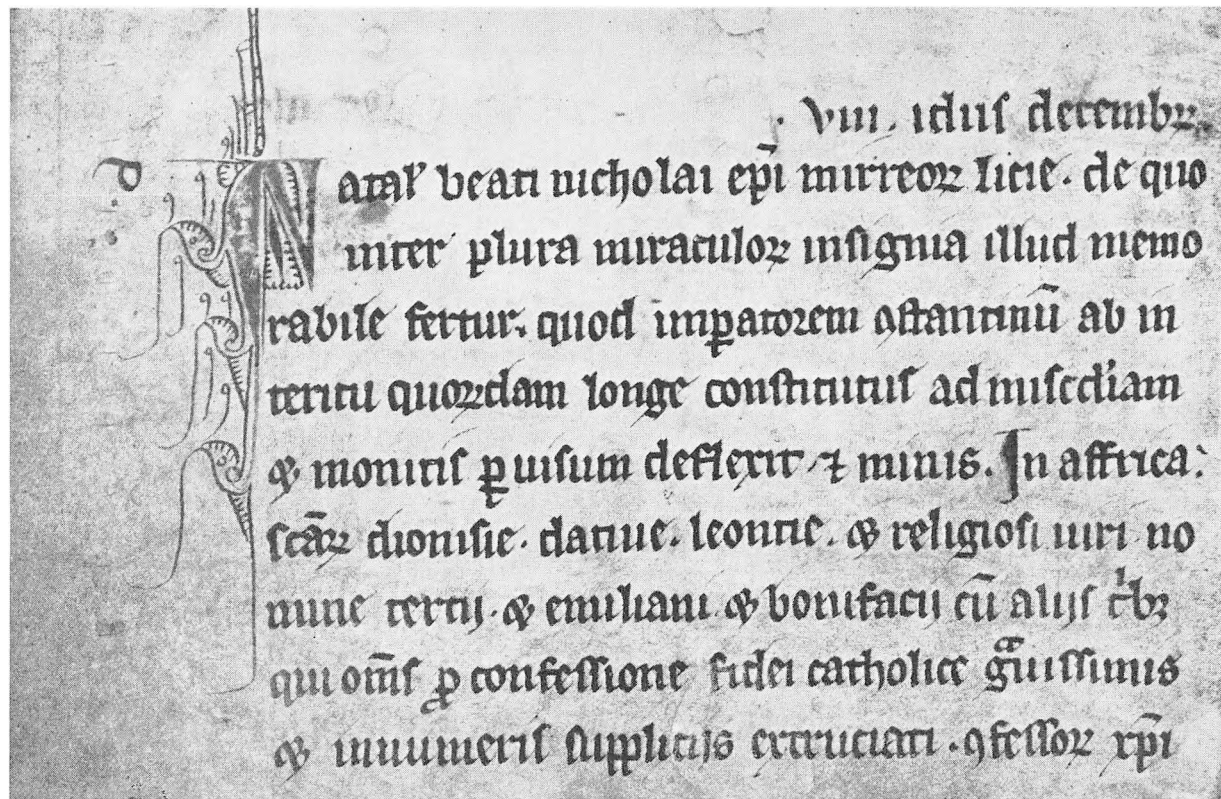 . viii. idus decembꝝ.
d Natal̛ beati nicholai ep̄i mirreoꝝ licie. de quo
inter plura miraculoꝝ insignia illud memo
rabile fertur. quod imꝑatorem ꝯstantinū ab in
teritu quoꝝdam longe constitutus ad misc̄diam
⁊ monitis ꝑ uisum deflexit. ⁊ minis. In affrica.
sc̄aꝝ dionisie. datiue. leontie. ⁊ religiosi uiri no
mine tercij. ⁊ emiliani ⁊ bonifacij cū alijs tⁱbꝫ
qui om̄s ꝓ confessione fidei catholice gͣuissimis
⁊ innumeris supplicijs excruciati. ꝯfessoꝝ xp̄i